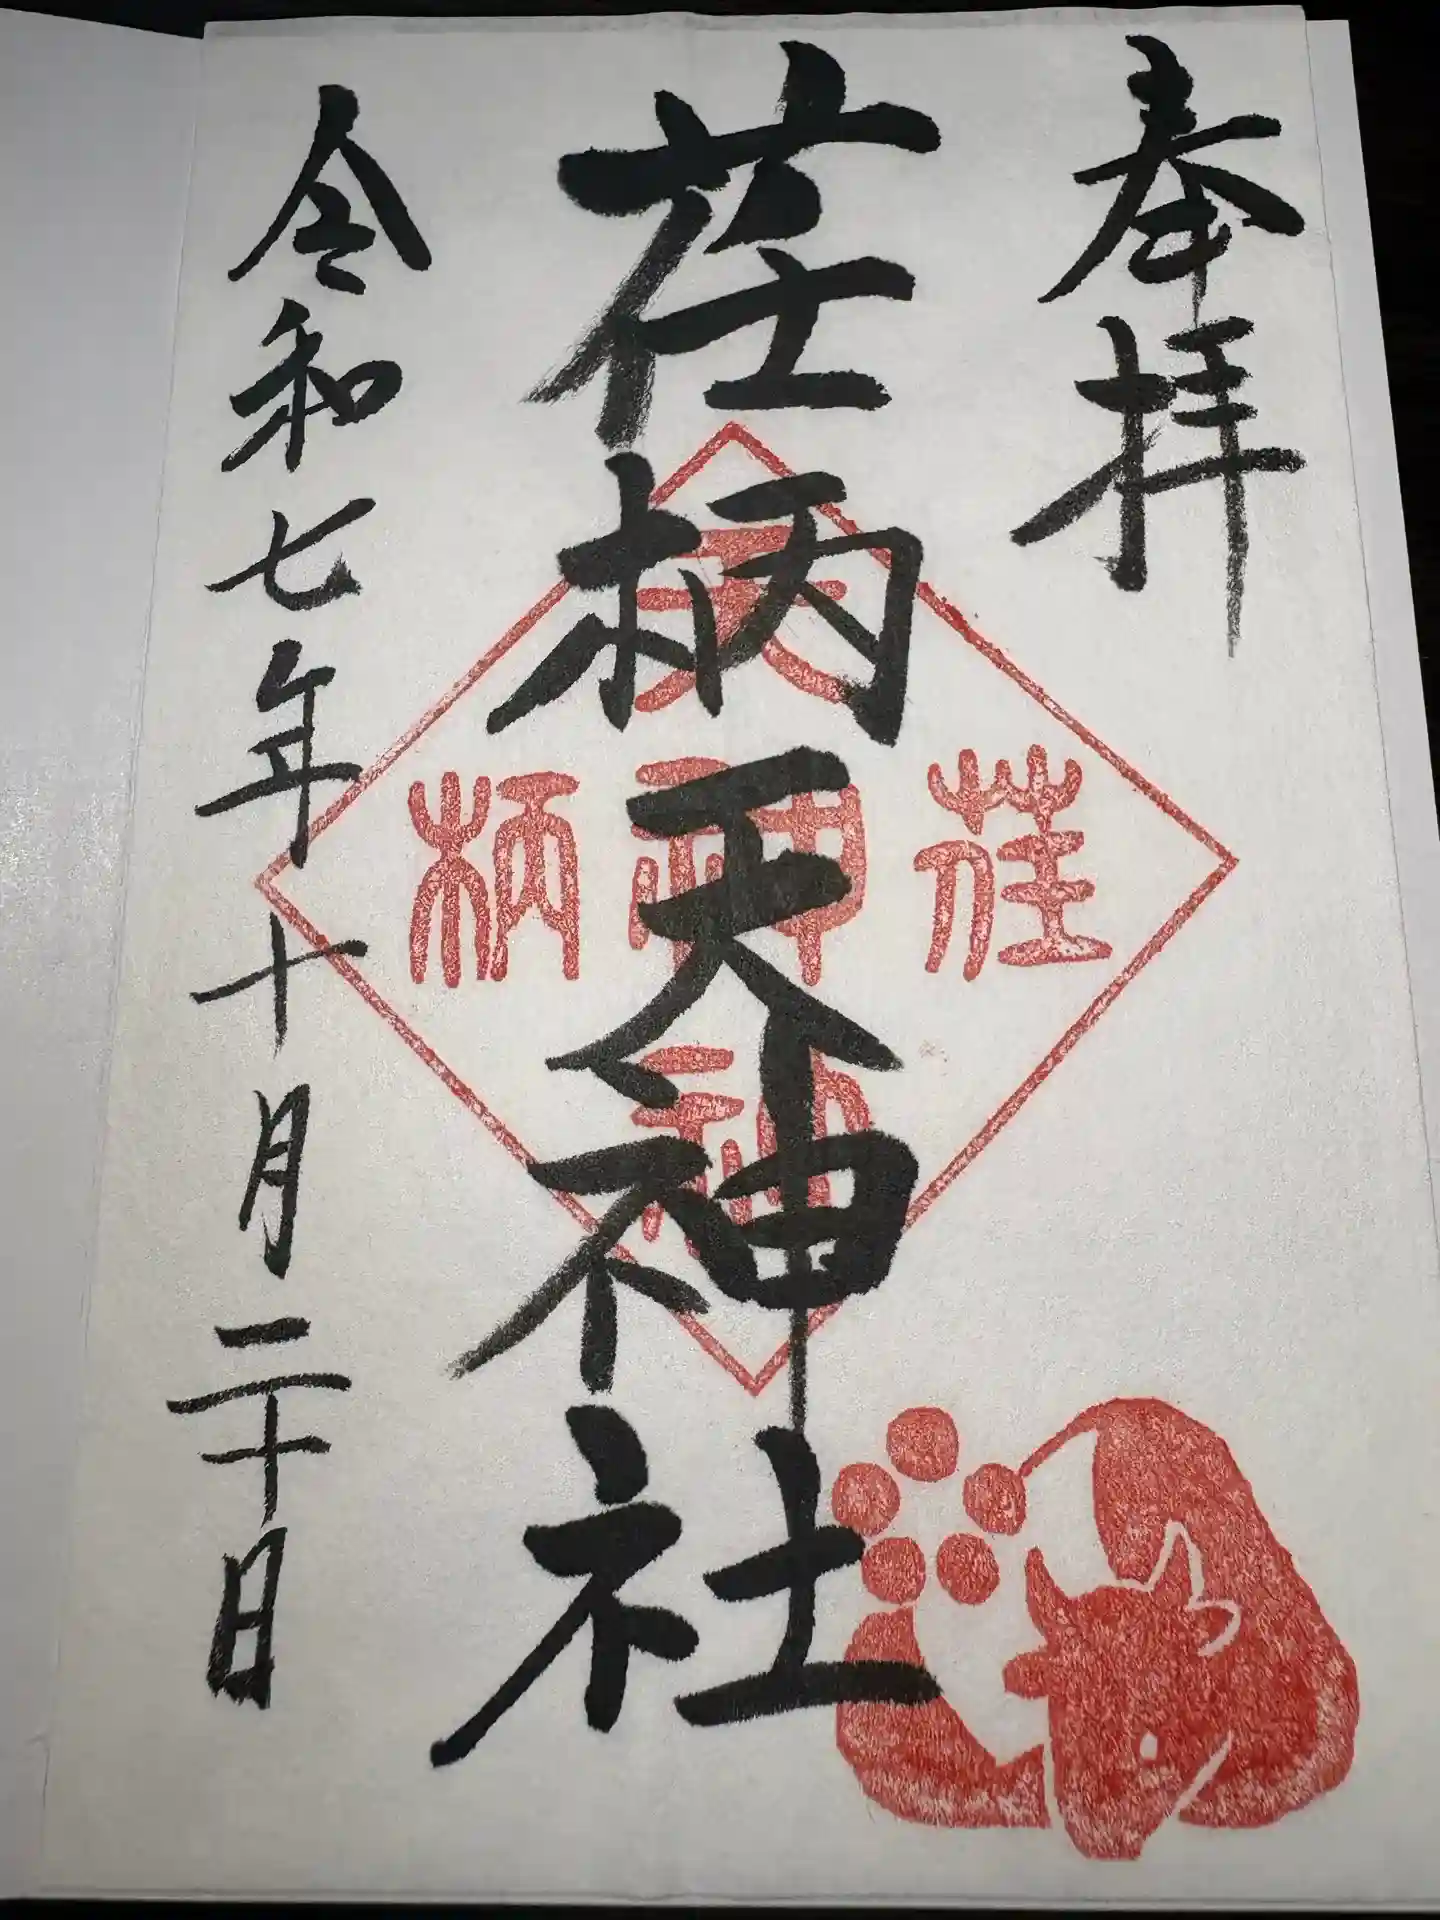 奉拝
荏柄天神社
令和七年十月二十日
荏
柄
天
神
社